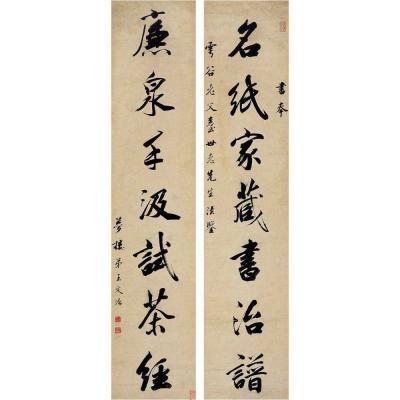 書奉
名紙家藏書治譜
雲谷老父臺世老先生法鑒
廉泉手汲試茶經
夢樓弟王文治